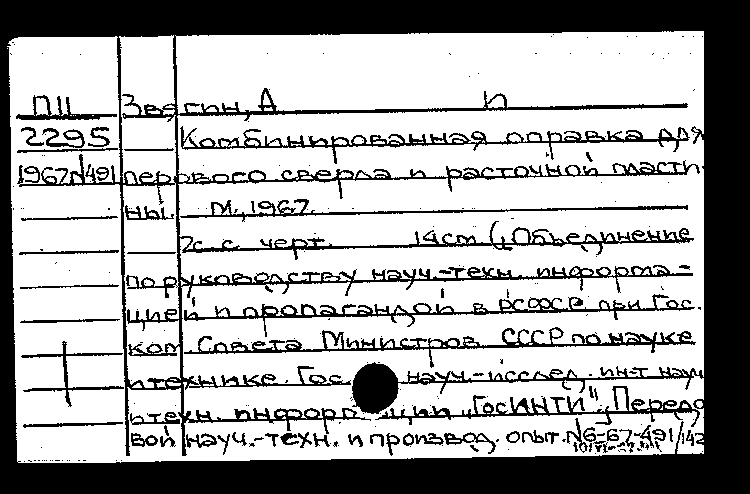 П11 Звягин, А и
2295 Комбинированная оправка для
1967 N491 перового сверла и расточной пласти-
ны. М., 1967.
2с. с черт. 14см (Объединение
по руководству науч.-техн. информа-
цией и пропагандой в РСФСР при Гос.
ком. Совета Министров СССР по науке
и технике. Гос. науч.-исслед. ин-т науч
и техн. информации "ГосИНТИ", Передо
вой науч.-техн. и производ. опыт. N6-67-491/142